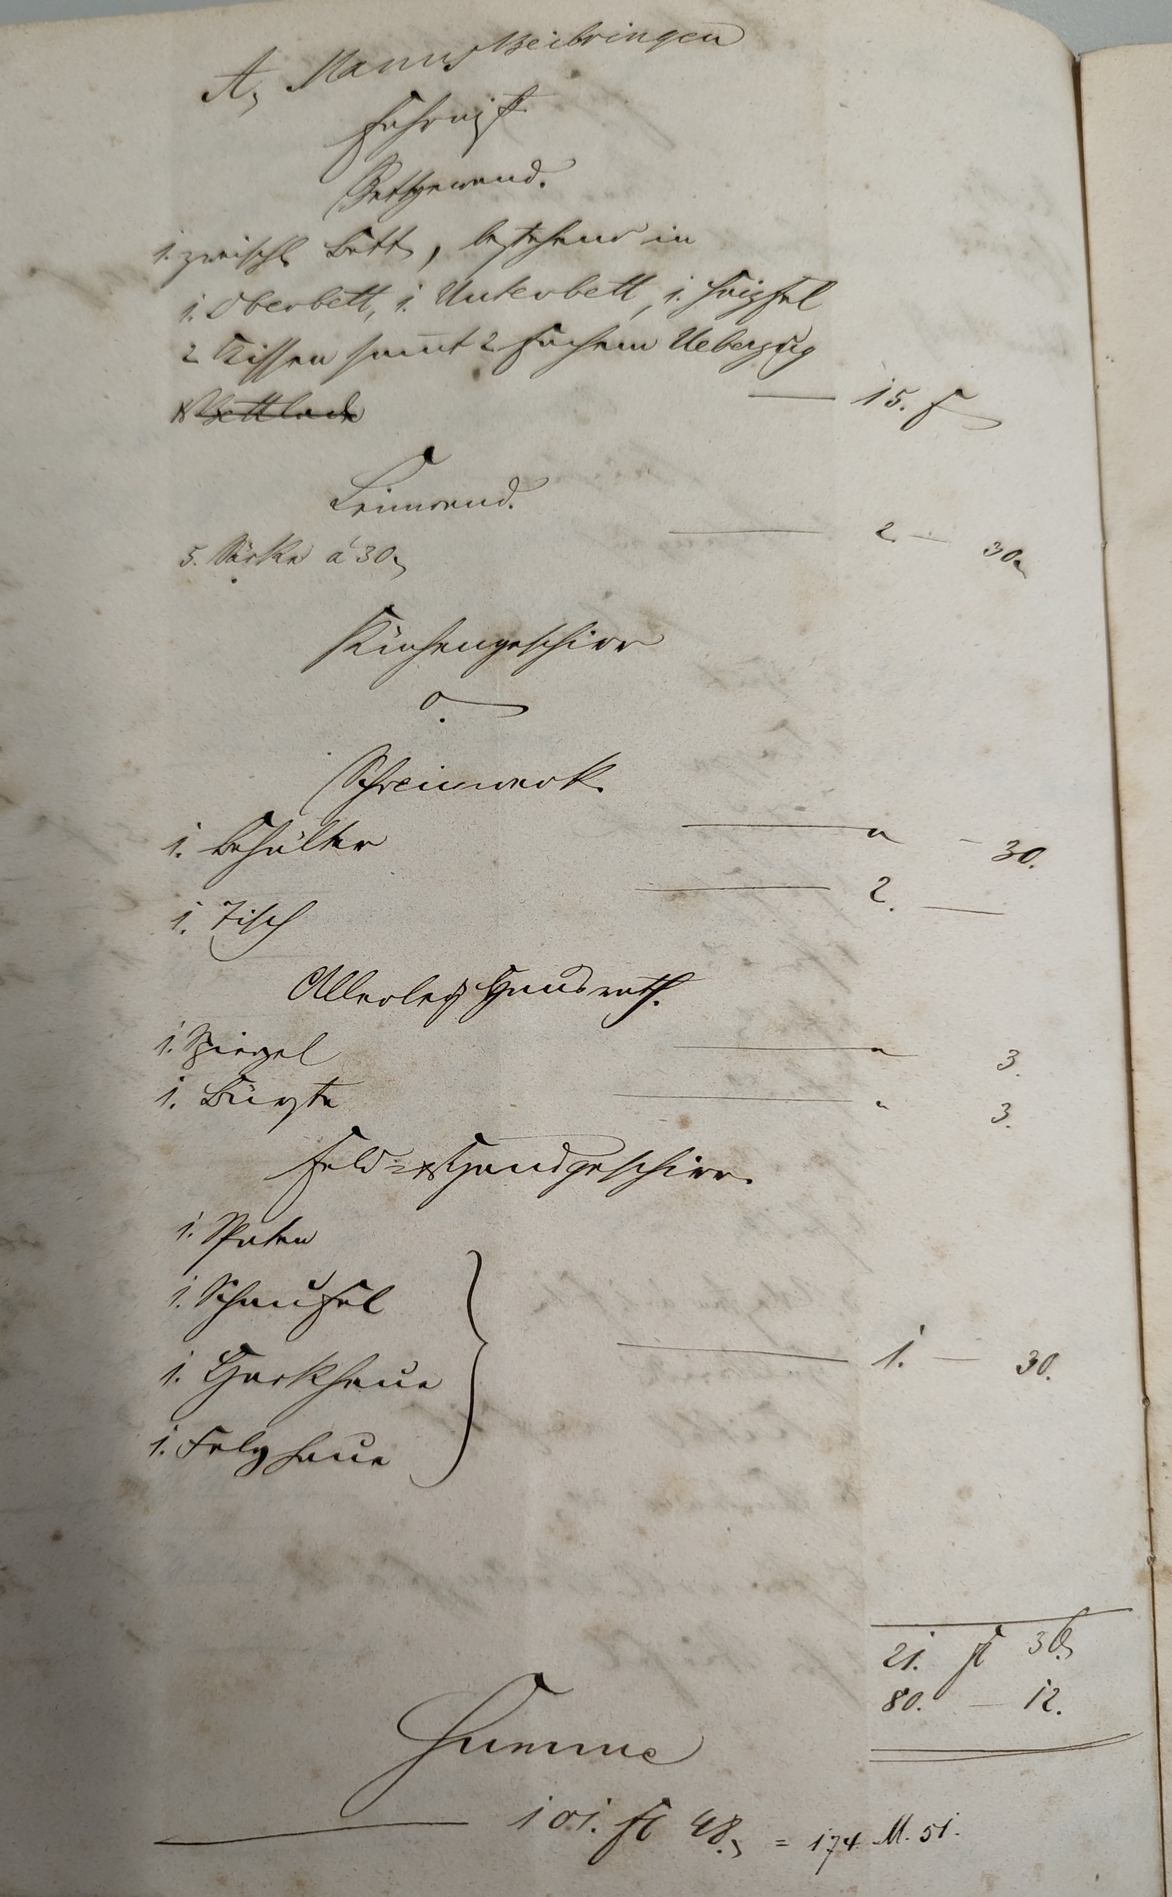 A, Manns Beibringen
Fahrniß
Bettgewand.
1. zweischl. Bett, bestehend in
1. Oberbett, 1. Unterbett, 1. Haipfel
2 Kissen sammt 2 fachem Ueberzug
Bettlade — 15. f
Leinwand.
5. Säcke à 30 — 2 — 30
Küchengeschirr
0.
Schreinwerk.
1. Behälter — " — 30.
1. Tisch — 2. —
Allerley Hausrath.
1. Spiegel — " 3.
1. Bürste — " 3.
Feld= & Handgeschirr.
1. Spaten
1. Schaufel
1. Hackhaue — 1. — 30.
1. Felghaue
21. fl 36
80. — 12.
Summe
— 101. fl 48. = 174 M. 51.